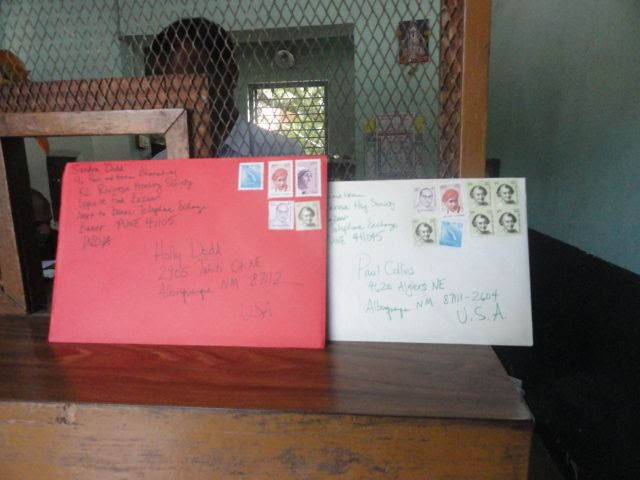 Sandra Dodd
K2 Riviresa Housing Society
Opposite Food Bazaar
Next to Baner Telephone Exchange
Baner PUNE 411045
INDIA
Holly Dodd
2905 Tahiti Ct. NE
Albuquerque NM 87112
USA
Hsg Society
Telephone Exchange
PUNE 411045
Paul Collins
4620 Algiers NE
Albuquerque NM 87111-2604
U.S.A.